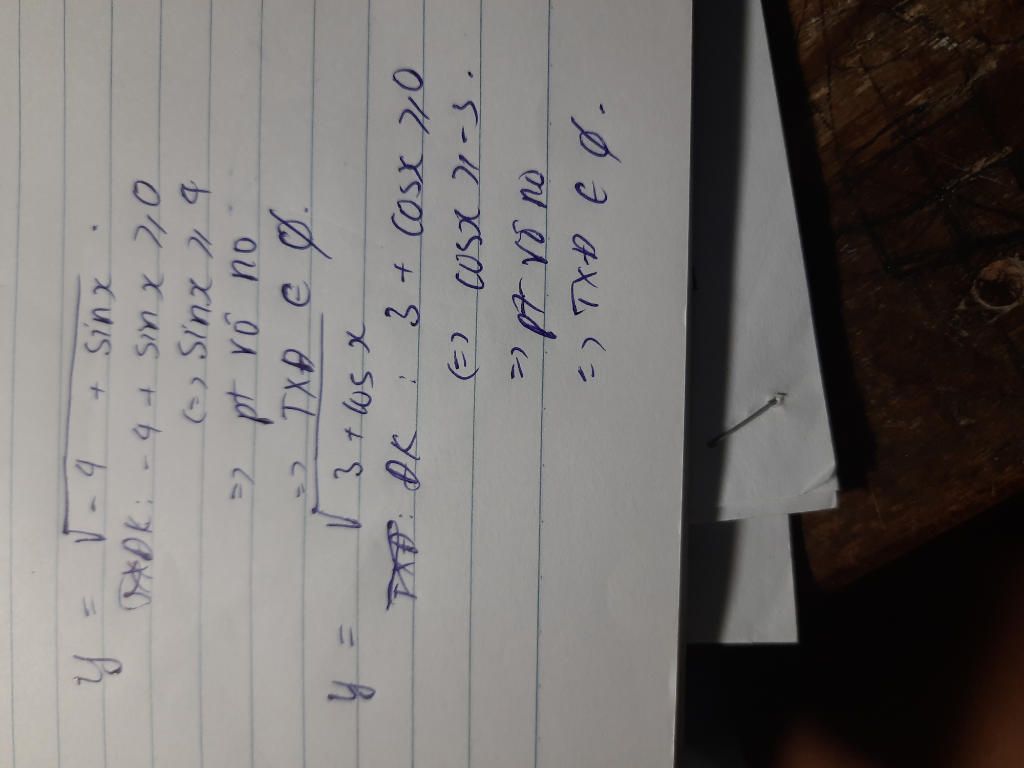 y = √-4 + sinx .
ĐK: -4 + sinx ≥ 0
(=> sinx ≥ 4
=> pt vô no
=> TXĐ ∈ ∅.
y = √3 + cosx
TXĐ: ĐK: 3 + cosx ≥ 0
(=> cosx ≥ -3.
=> pt vô no
=> TXĐ ∈ ∅.